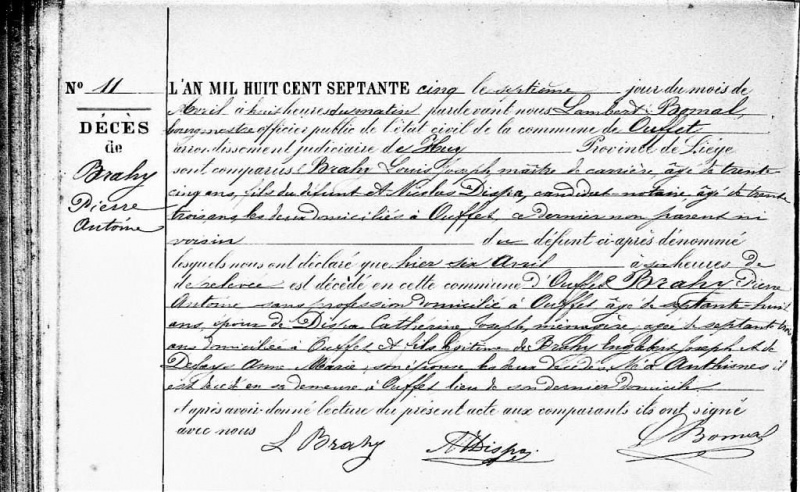 N° 11
DÉCÈS
de
Brahy
Pierre
Antoine
L'AN MIL HUIT CENT SEPTANTE cinq le septième jour du mois de
Avril à huit heures du matin par devant nous Lambert Bomal,
bourgmestre officier public de l'état civil de la commune de Ouffet
arrondissement judiciaire de Huy Province de Liége
sont comparus Brahy Louis Joseph, maître de carrière, âgé de trente
cinq ans, fils du défunt et Nicolas Dispa, candidat notaire, âgé de trente
trois ans, les deux domiciliés à Ouffet, ce dernier non parent ni
voisin du défunt ci-après dénommé
lesquels nous ont déclaré que hier six Avril à heures de
de relevée est décédé en cette commune d'Ouffet Brahy Pierre
Antoine sans profession domicilié à Ouffet âgé de septante-huit
ans, époux de Dispa Catherine Joseph, ménagère, âgée de septante
ans domiciliée à Ouffet et fils légitime de Brahy Joseph et de
Anne Marie, son épouse, les deux décédés à Anthisnes il
est décédé en sa demeure à Ouffet lieu de son dernier domicile
et après avoir donné lecture du présent acte aux comparants ils ont signé
avec nous
L Brahy
Dispa
L Bomal